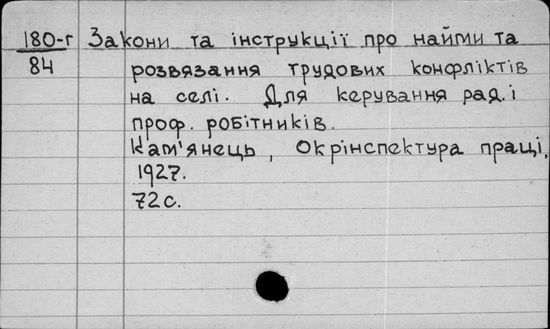 180-г Закони та інструкції про найми та
84 розвязання трудових конфліктів
на селі. Для керування рад. і
проф. робітників.
Кам'янець, Окрінспектура праці,
1927.
72с.